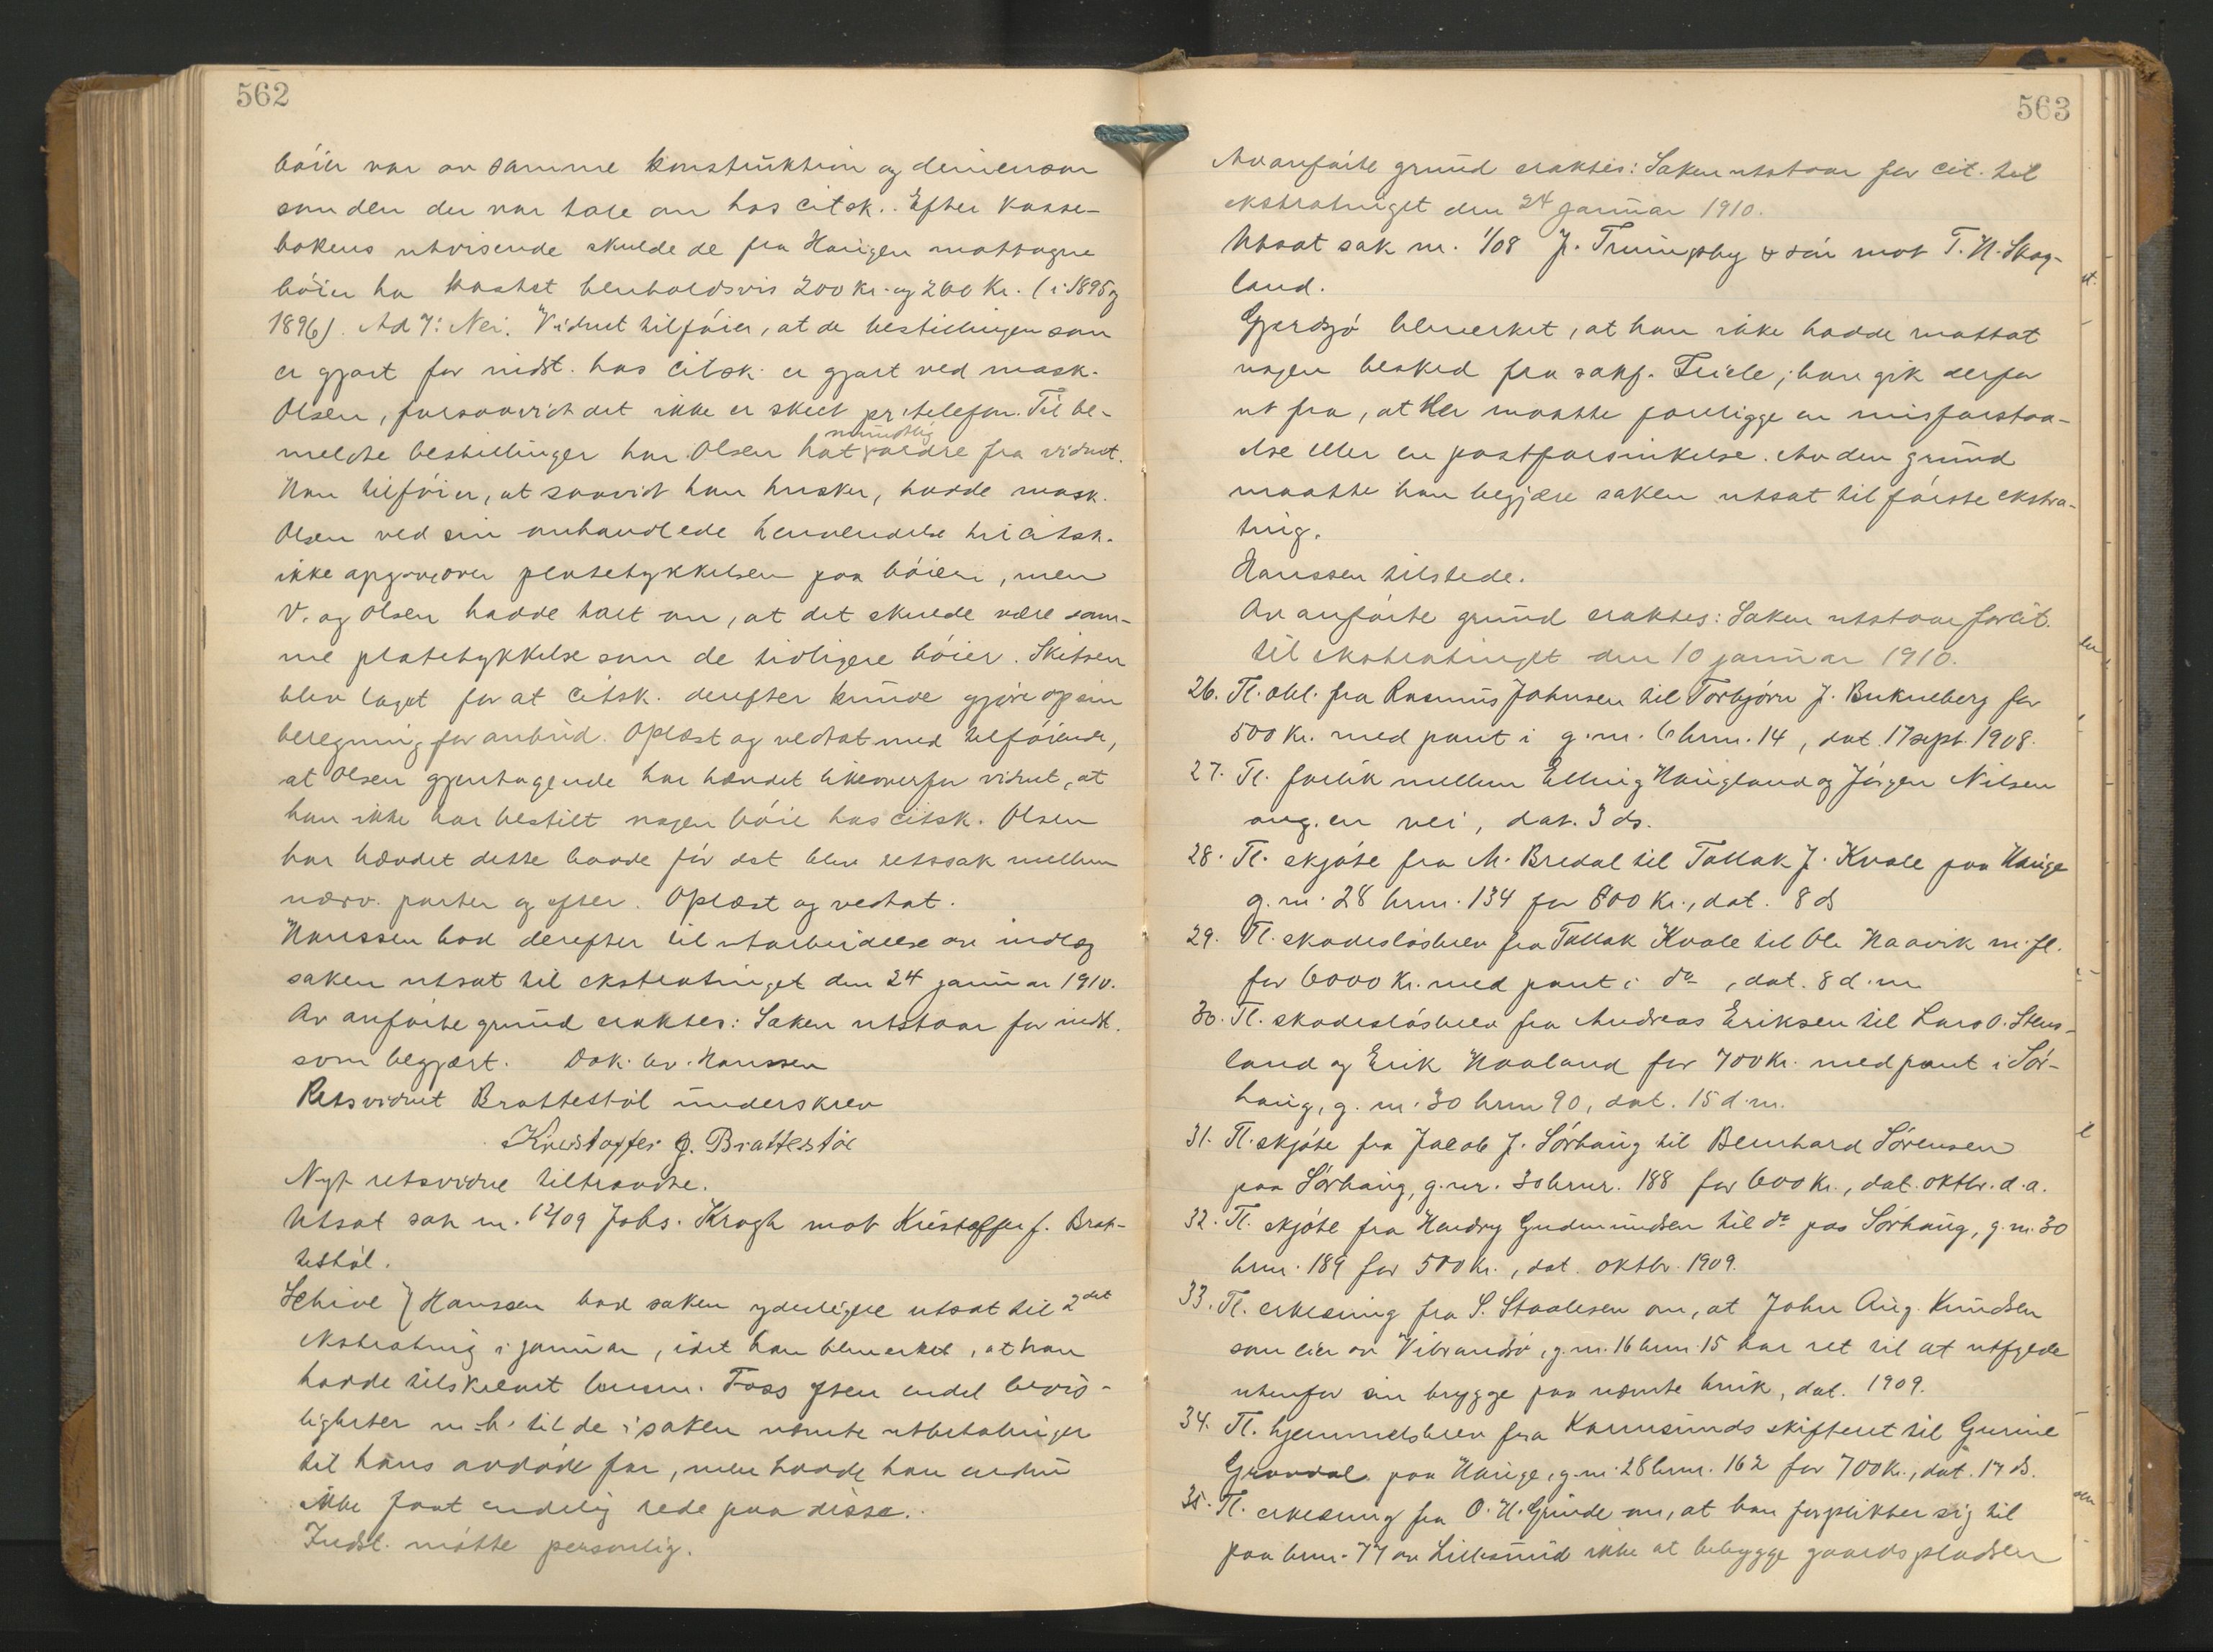 562
bøier var av samme konstruktion og dimension
som den der var tale om hos citsk. Efter kasse-
bokens utvisende skulde de fra Haugen mottagne
bøier ha kostet henholdsvis 200 kr. og 260 Kr. (i 1895 og
1896). Ad 7: Nei. Vidnet tilføier, at de bestillinger som
er gjort for indst. hos citsk. er gjort ved mask.
Olsen, forsaavidt det ikke er skeet pr. telefon. Til be-
meldte bestillinger har Olsen hat mundtlig ordre fra vidnet.
Han tilføier, at saavidt han husker, hadde mask.
Olsen ved sin omhandlede henvendelse til citsk.
ikke opgit over platetykkelsen paa bøien, men
V. og Olsen hadde talt om, at det skulde være sam-
me platetykkelse som de tidligere bøier. Skitsen
blev laget for at citsk. derefter kunde gjøre op sin
beregning for anbud. Oplæst og vedtat med tilføiende,
at Olsen gjentagende har hævdet likeoverfor vidnet, at
han ikke har bestilt nogen bøie hos citsk. Olsen
har hævdet dette baade før det blev retssak mellem
nærv. parter og efter. Oplæst og vedtat.
Hanssen bad derefter til utarbeidelse av indlæg
saken utsat til ekstratinget den 24 januar 1910.
Av anførte grund eraktes: Saken utstaar for indst.
som begjært. Dok. lev. Hanssen
Retsvidnet Brattestøl underskrev
Kristoffer J. Brattestøl
Nyt retsvidne tiltraadte.
Utsat sak nr. 12/09 Johs. Krogh mot Kristoffer J. Brat-
testøl.
Schive / Hanssen bad saken yderligere utsat til 2det
ekstrating i januar, idet han bemerket, at han
hadde tilskrevet lensm. Foss efter endel bevis-
ligheter m. h. til de i saken nævnte utbetalinger
til hans avdøde far, men hadde han endnu
ikke faat endelig rede paa disse.
Indst. møtte personlig.
563
Av anførte grund eraktes: Saken utstaar for cit. til
ekstratinget den 24 januar 1910.
Utsat sak nr. 1/08 J. Trumphy & søn mot T. H. Skog-
land.
Gjerdsjø bemerket, at han ikke hadde mottat
nogen besked fra sakf. Friele; han gik derfor
ut fra, at der maatte foreligge en misforstaa-
else eller en postforsinkelse. Av den grund
maatte han begjære saken utsat til første ekstra-
ting.
Hanssen tilstede.
Av anførte grund eraktes: Saken utstaar for cit.
til ekstratinget den 10 januar 1910.
26. Tl. obl. fra Rasmus Johnsen til Torbjørn J. Bukneberg for
500 Kr. med pant i g.nr. 6 brnr. 14, dat. 17 sept. 1908.
27. Tl. forlik mellem Elling Haugland og Jørgen Nilsen
ang. en vei, dat. 3 ds.
28. Tl. skjøte fra M. Bredal til Tallak J. Kvale paa Hauge
g.nr. 28 brnr. 134 for 800 Kr., dat. 8 ds
29. Tl. skadesløsbrev fra Tallak Kvale til Ole Haavik m. fl.
for 6000 Kr. med pant i do, dat. 8 d.m.
30. Tl. skadesløsbrev fra Andreas Eriksen til Lars O. Stens-
land og Erik Haaland for 700 Kr. med pant i Sør-
haug, g. nr. 30 brnr 90, dat. 15 d.m.
31. Tl. skjøte fra Jacob J. Sørhaug til Bernhard Sørensen
paa Sørhaug, g.nr. 30 brnr. 188 for 600 Kr., dat. oktbr. d.a.
32. Tl. skjøte fra Gudmundsen til do paa Sørhaug, g.nr. 30
brnr. 189 for 500 Kr., dat. oktbr. 1909.
33. Tl. erklæring fra S. Staalesen om, at John Aug. Knudsen
som eier av Vibrandsø, g.nr. 16 brnr. 15 har ret til at utfylde
utenfor sin brygge paa nævnte bruk, dat. 1909.
34. Tl. hjemmelsbrev fra Karmsunds skifteret til Gurine
Grøndal paa Hauge, g.nr. 28 brnr. 162 for 700 Kr., dat. 17 ds.
35. Tl. erklæring fra O. H. Grinde om, at han forplikter sig til
paa brnr. 77 av Lillesund ikke at bebygge gaardspladsen